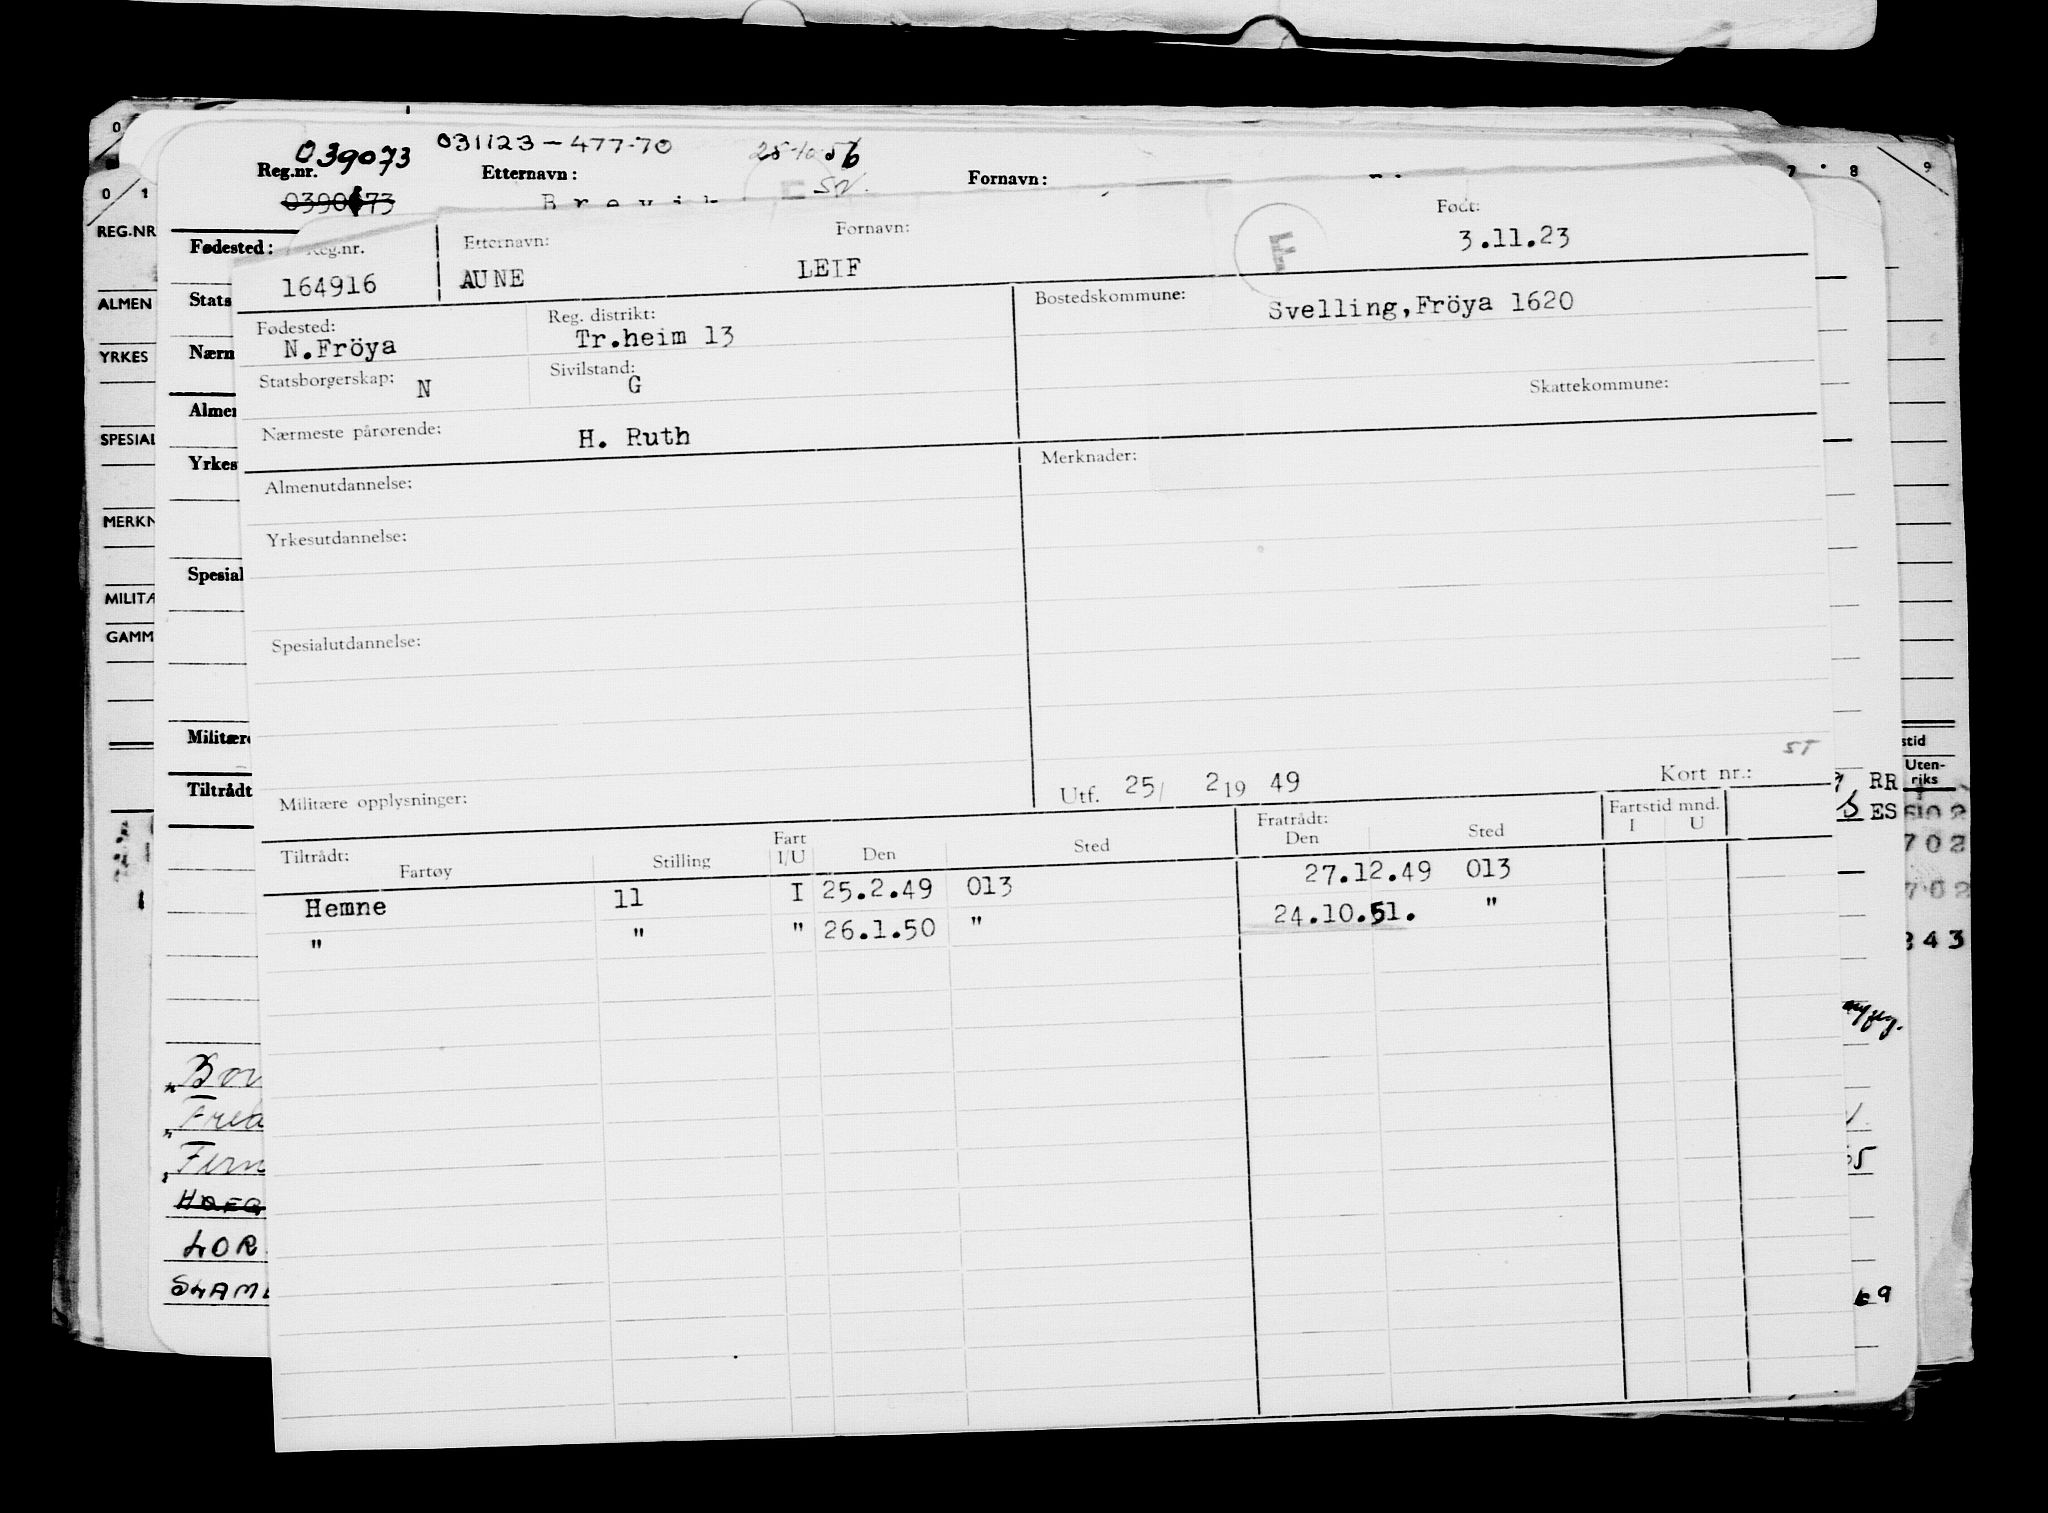 039073 031123-477-70 25-10-56
Reg.nr. Etternavn: SV. Fornavn:
0390673 Brevik
Fødested: Reg.nr. Etternavn: Fornavn: F Født:
164916 AUNE LEIF 3.11.23
Fødested: Reg. distrikt: Bostedskommune:
N.Fröya Tr.heim 13 Svelling,Fröya 1620
Statsborgerskap: N Sivilstand: G Skattekommune:
Nærmeste pårørende: H. Ruth Merknader:
Almenutdannelse:
Yrkesutdannelse:
Spesialutdannelse:
ST
Militære opplysninger: Utf. 25/ 2 19 49 Kort nr.:
Tiltrådt: Fart Fratrådt: Fartstid mnd.
Fartøy Stilling I/U Den Sted Den Sted I U
Hemne 11 I 25.2.49 013 27.12.49 013
" " " 26.1.50 " 24.10.51. "
0 1 7 8 9
REG.NR
ALMEN
YRKES
SPESIAL
MERKN
MILITÆ
GAMM
Stats
Nærm
Almen
Yrkes
Spesial
Militære
Tiltrådt
stid
Uten-
riks
RR
ES
702
702
343
HOEG
LOR
SLAME